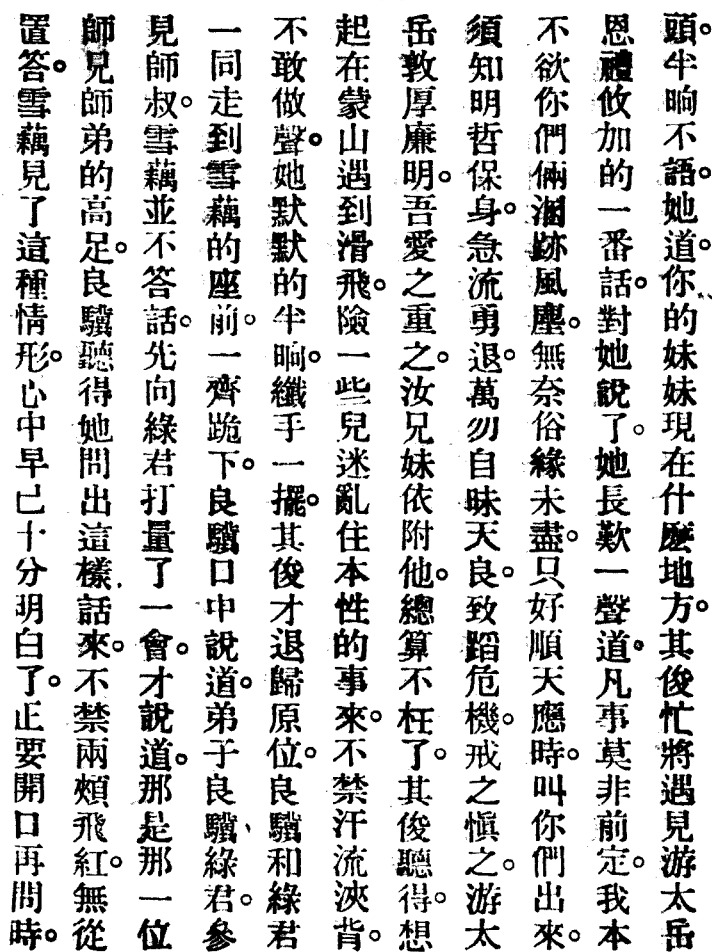 頭。半晌不語。她道。你的妹妹現在什麽地方。其俊忙將遇見游太岳
恩禮攸加的一番話。對她說了。她長歎一聲道。凡事莫非前定。我本
不欲你們倆溷跡風塵。無奈俗緣未盡。只好順天應時。叫你們出來。
須知明哲保身。急流勇退。萬勿自昧天良。致蹈危機。戒之愼之。游太
岳敦厚廉明。吾愛之重之。汝兄妹依附他。總算不枉了。其俊聽得。想
起在蒙山遇到滑飛。險一些兒迷亂住本性的事來。不禁汗流浹背。
不敢做聲。她默默的半晌。纖手一擺。其俊才退歸原位。良驥和綠君
一同走到雪藕的座前。一齊跪下。良驥口中說道。弟子良驥、綠君。參
見師叔。雪藕並不答話。先向綠君打量了一會。才說道。那是那一位
師兄師弟的高足。良驥聽得她問出這樣話來。不禁兩頰飛紅。無從
置答。雪藕見了這種情形。心中早已十分明白了。正要開口再問時。